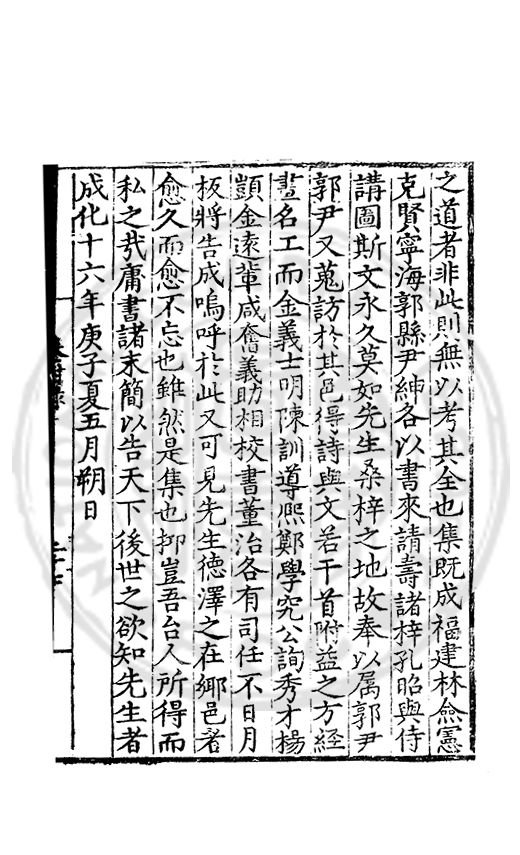 之道者非此則無以考其全也集既成福建林僉憲
克賢寧海郭縣尹紳各以書來請壽諸梓孔昭與侍
講圖斯文永久莫如先生桑梓之地故奉以屬郭尹
郭尹又蒐訪於其邑得詩與文若干首附益之方經
畫名工而金義士明陳訓導熈鄭學究公詢秀才楊
顗金遠輩咸奮義助相校書董治各有司任不日月
板將告成嗚呼於此又可見先生德澤之在鄉邑者
愈久而愈不忘也雖然是集也抑豈吾台人所得而
私之哉庸書諸末簡以告天下後世之欲知先生者
成化十六年庚子夏五月朔日